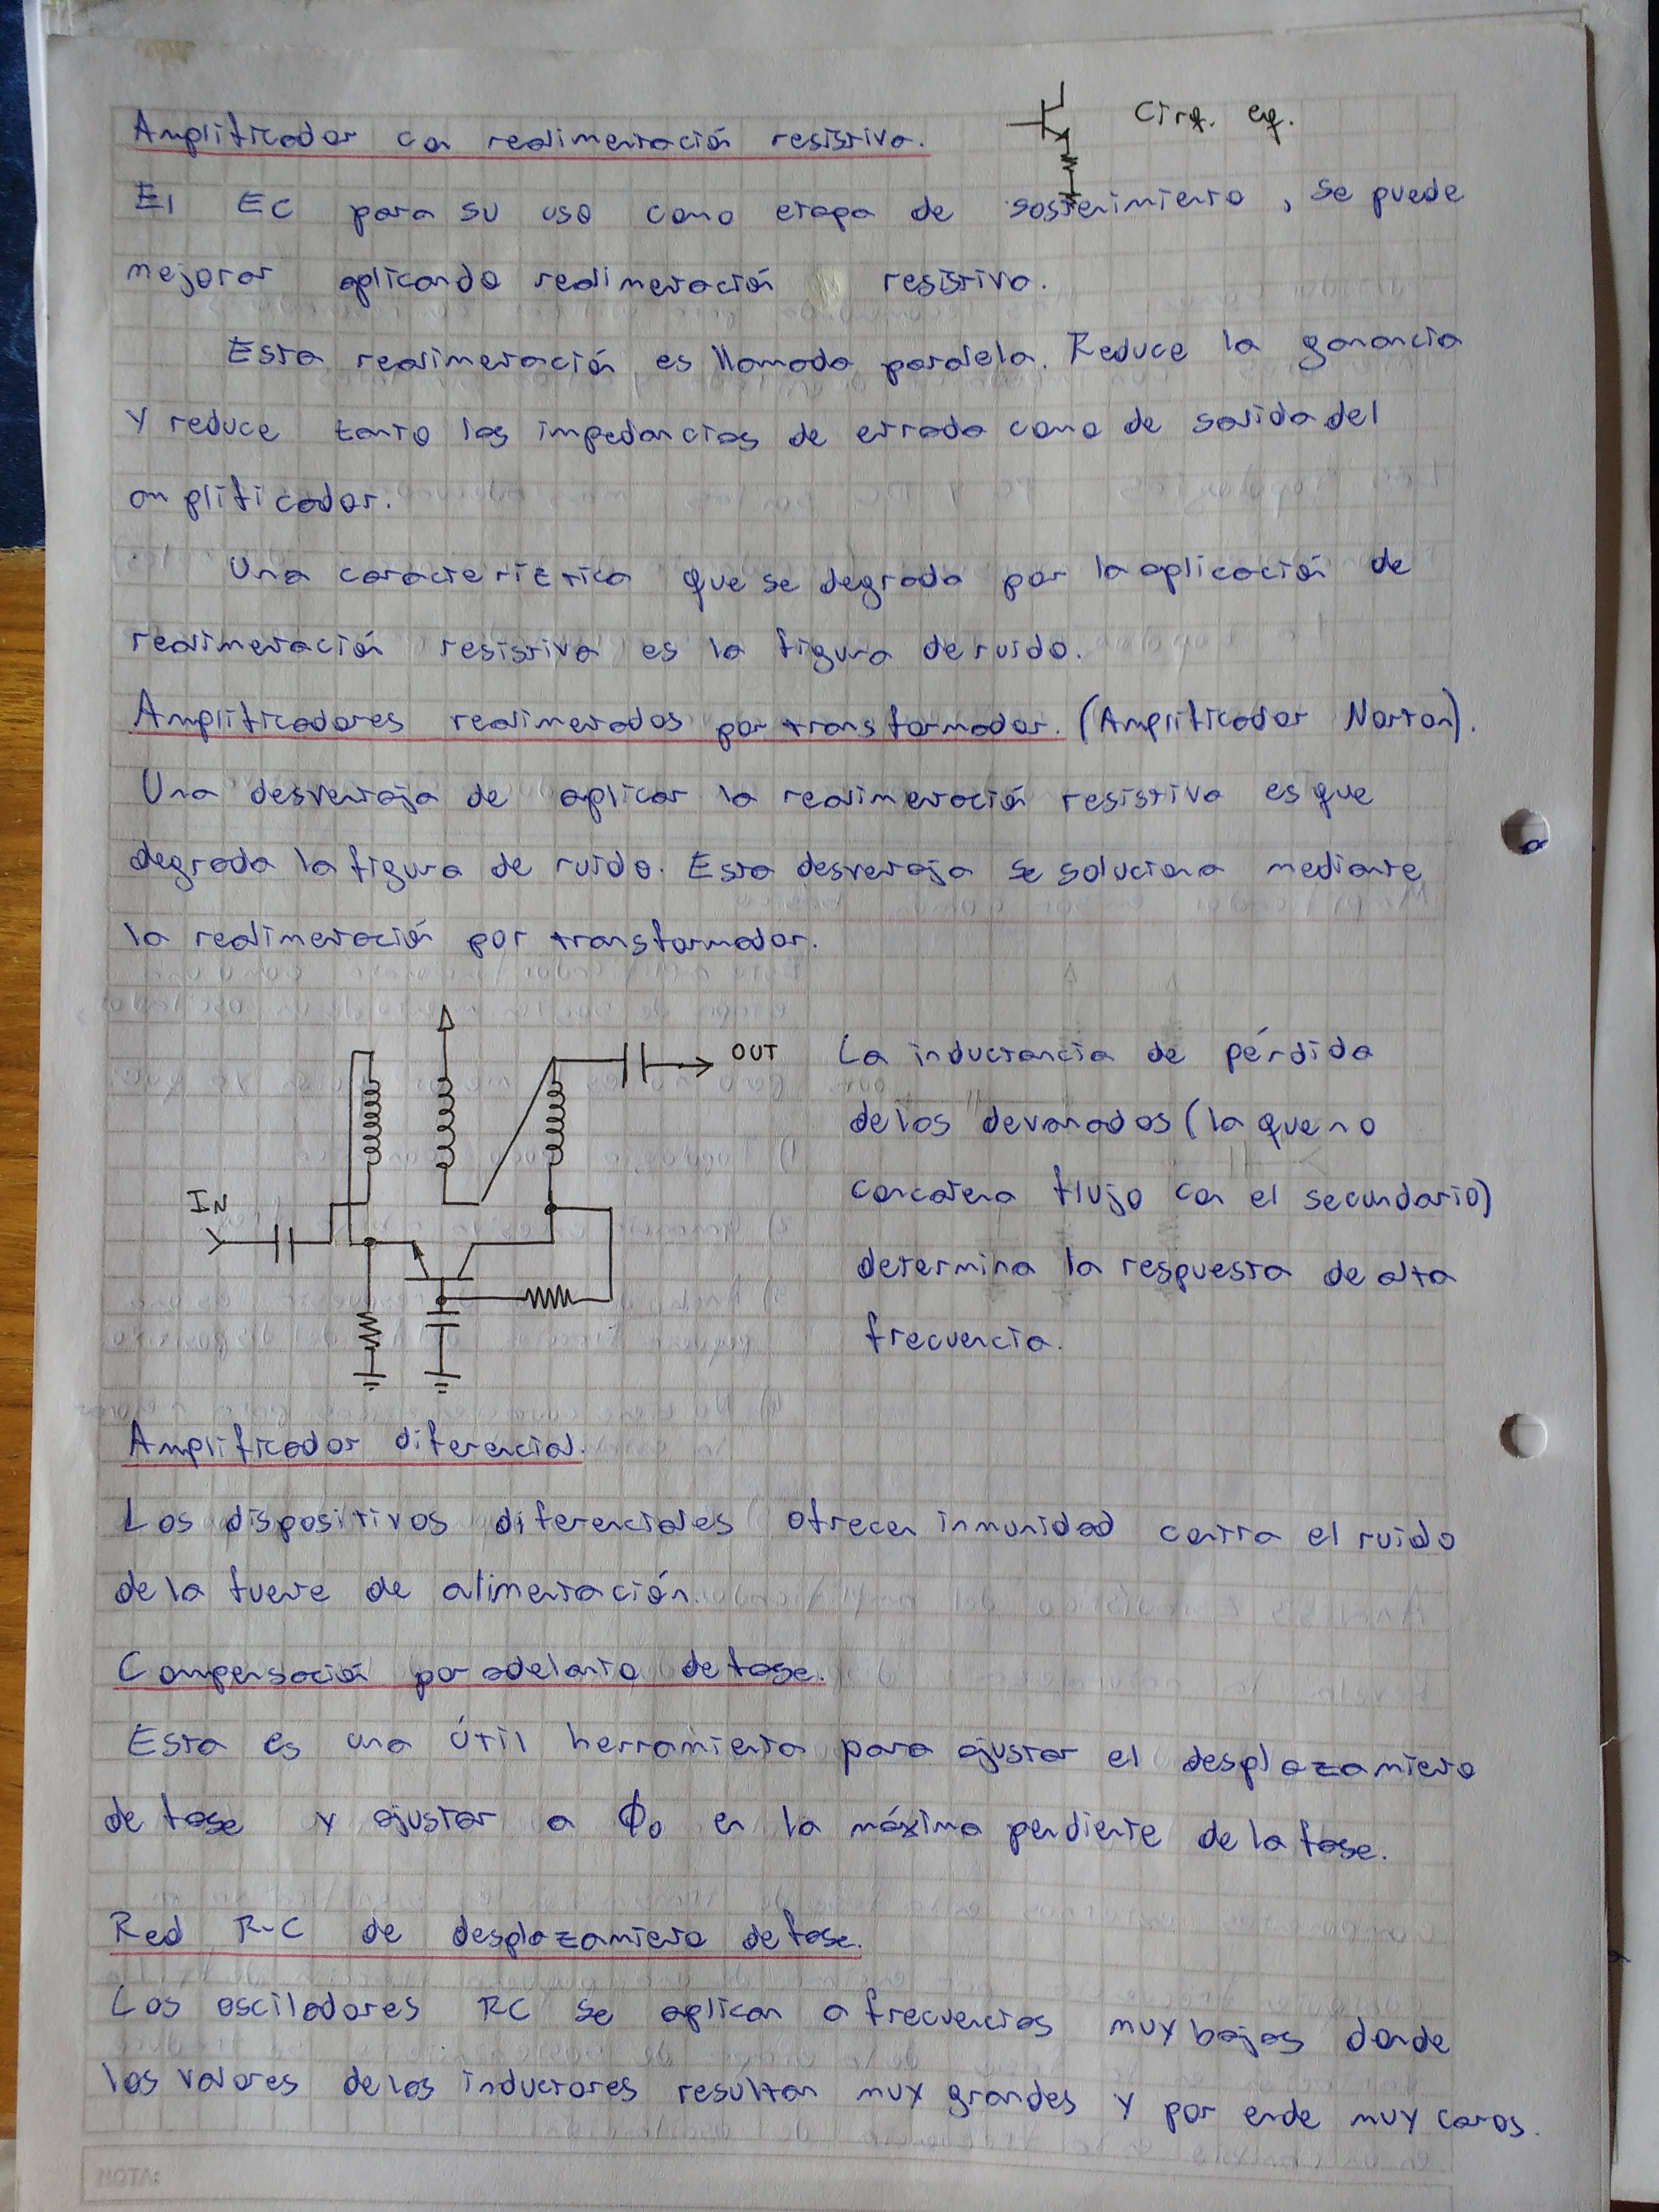 Amplificador con realimentación resistiva.
Cirq. eq.
El EC para su uso como etapa de sostenimiento, se puede
mejorar aplicando realimentación resistiva.
Esta realimentación es llamada paralela. Reduce la ganancia
y reduce tanto las impedancias de entrada como de salida del
amplificador.
Una caracteriztica que se degrada por la aplicación de
realimentación resistiva es la figura de ruido.
Amplificadores realimentados por transformador. (Amplificador Norton).
Una desventaja de aplicar la realimentación resistiva es que
degrada la figura de ruido. Esta desventaja se soluciona mediante
la realimentación por transformador.
OUT
IN
La inductancia de pérdida
de los devanados (la que no
concatena flujo con el secundario)
determina la respuesta de alta
frecuencia.
Amplificador diferencial.
Los dispositivos diferenciales ofrecen inmunidad contra el ruido
de la fuente de alimentación.
Compensación por adelanto de fase.
Esta es una útil herramienta para ajustar el desplazamiento
de fase y ajustar a ϕ₀ en la máxima pendiente de la fase.
Red R-C de desplazamiento de fase.
Los osciladores RC se aplican a frecuencias muy bajas donde
los valores de los inductores resultan muy grandes y por ende muy caros.
NOTA: